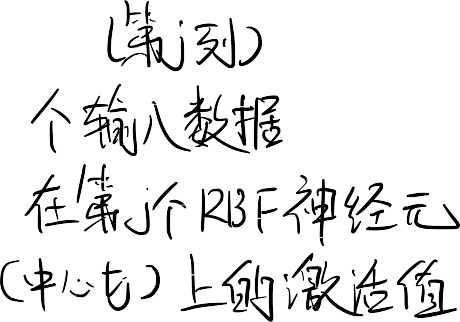 (第j列)
个输入数据
在第j个RBF神经元
(中心t)上的激活值